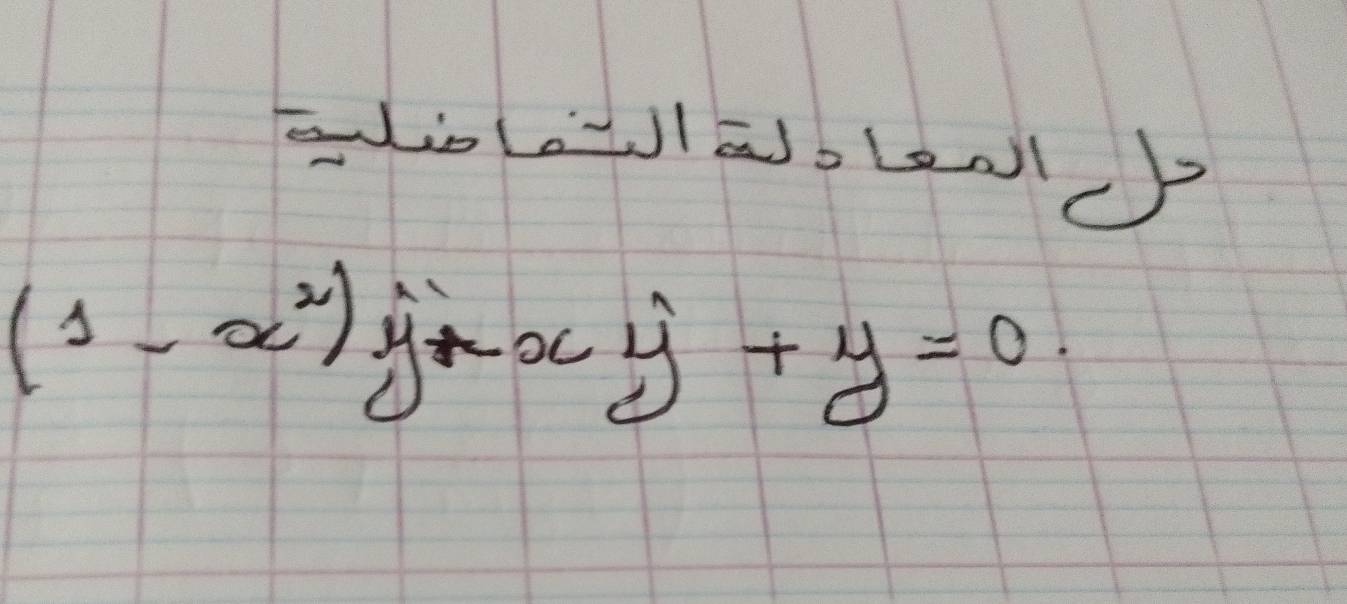 حل المعادلة التفاضلية
(1 - x²) y'' - x y' + y = 0.